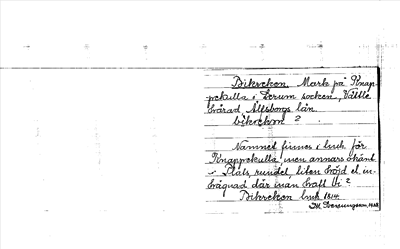 Bikroken. Mark på Knap-
pekulla i Lerum socken, Vättle
härad Älfsborgs län.
bikrokən ?
Namnet finnes i bruk för
Knappekulla, men annars okänt
Plats, rundel, liten höjd el. in-
hägnad där man haft bi?
Bikroken bruk 1814.